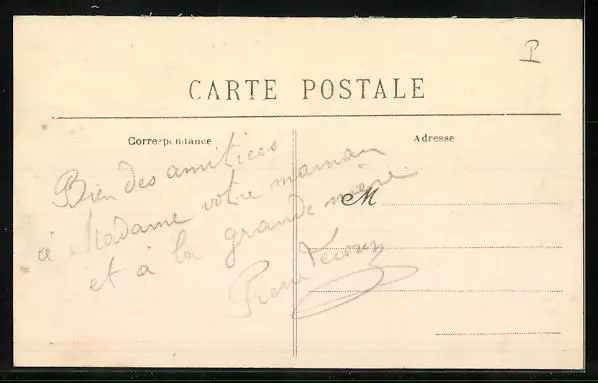 P
CARTE POSTALE
Correspondance
Adresse
Bien des amitiées
à Madame votre maman
et à la grande mère
M
Pierre